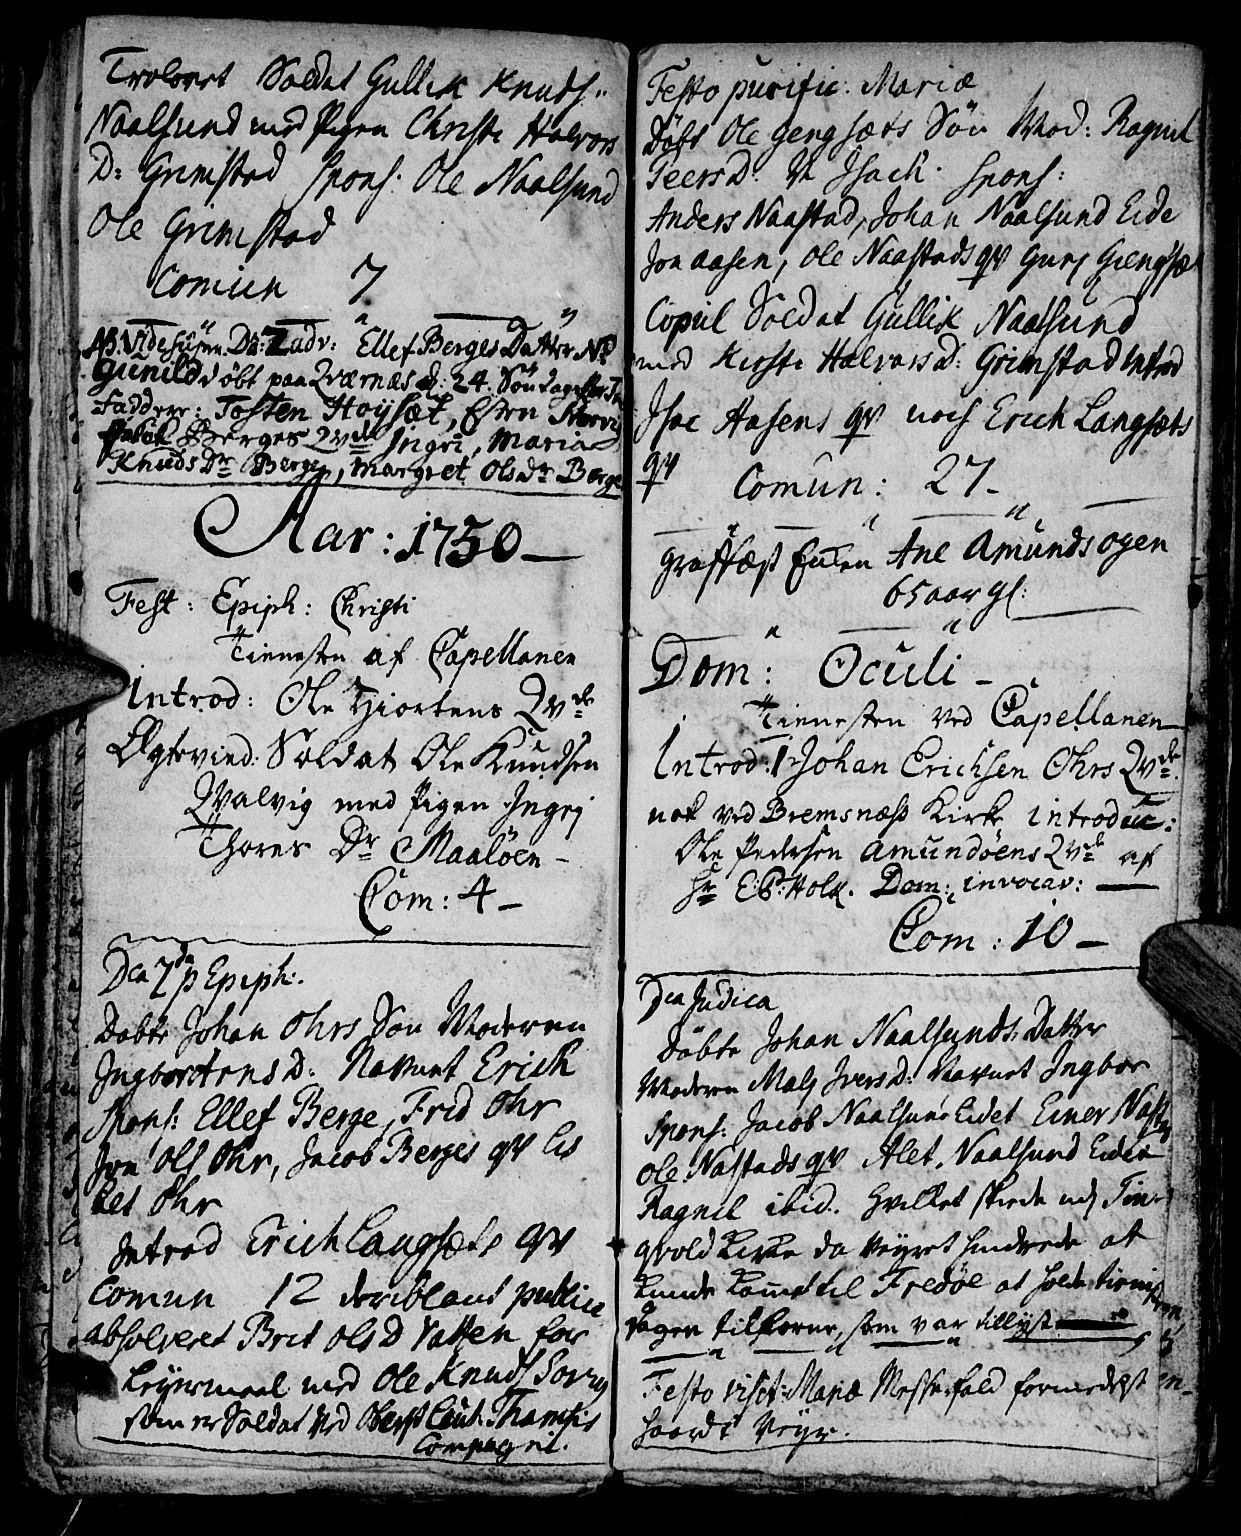 Trolovet Soldat Gullik Knuds..
Naalsund med Pigen Christi Halvors
D: Grimstad Spons: Ole Naalsund
Ole Grimstad
Comun 7
NB. Vide Dn: 2 adv: Ellef Berges Datter N
Gunild döbt paa Qværnæs d: 24. Söndag
Faddere: Tosten Höysæt, Esten
Berges Qvde Ingri, Maria
Knuds Dr Berge, Margret Ols Dr Berge
Aar: 1750
Fest: Epiph: Christi
Tienesten af Capellanen
Introd: Ole Hiortens Qvde
Ægtevied: Soldat Ole Knudsen
Qvalvig med Pigen Ingej
Thores Dr Maalöen -
Com: 4 -
Dca 2da p Epiph:
Döbte Johan Ohrs Sön Moderen
Ingbor Stens D: Navnet Erich
Spons: Ellef Berge, Frid Ohr
Jon Ols Ohr, Jacob Berges qv Lis
bet Ohr
Introd Erich Langsæts qv
Comun 12 deriblant publice
absolveret Brit Ols D Vatten for
Leyermaal med Ole Knuds
som er Soldat ved Oberst Leut: Thams
Compagni.
Festo purific: Mariæ
Döbt Ole Gengsæts Sön Mod: Ragnil
Peers D: N Isach. Spons:
Anders Naastad, Johan Naalsund Eide
Jon Aasen, Ole Naastads qv Gurj Giengsæ
Copul Soldat Gullik Naalsund
med Kirsti Halvors D: Grimstad Introd
Isac Aasens qv noch Erich Langsæts
qv
Comun: 27 -
Graffæst Ane Amundsøgen
65 aar gl:
Dom: Oculi -
Tienesten ved Capellanen
Introd: 1 Johan Erichsen Ohrs Qvde
nok ved Bremsnæs Kirke introduc:
Ole Pedersen Amundöens Qvde af
Hr E: P: Holk. Dom: invocav:
Com: 10 -
Dca Judica
Döbte Johan Naalsunds Datter
Moderen Malj Ivers D: Navnet Ingbor
Spons: Jacob Naalsund Eidet Einer Nast
Ole Nastads qv Alet. Naalsund Eidet
Ragnil ibid. Hvilket skede udj Tin
qvold Kirke da Veyret hindrede at
kunde komme til Fredöe at holde tienesten
dagen tilforne, som var tillyst
Festo visit: Mariæ Messefald formedelst
haardt Veyr.